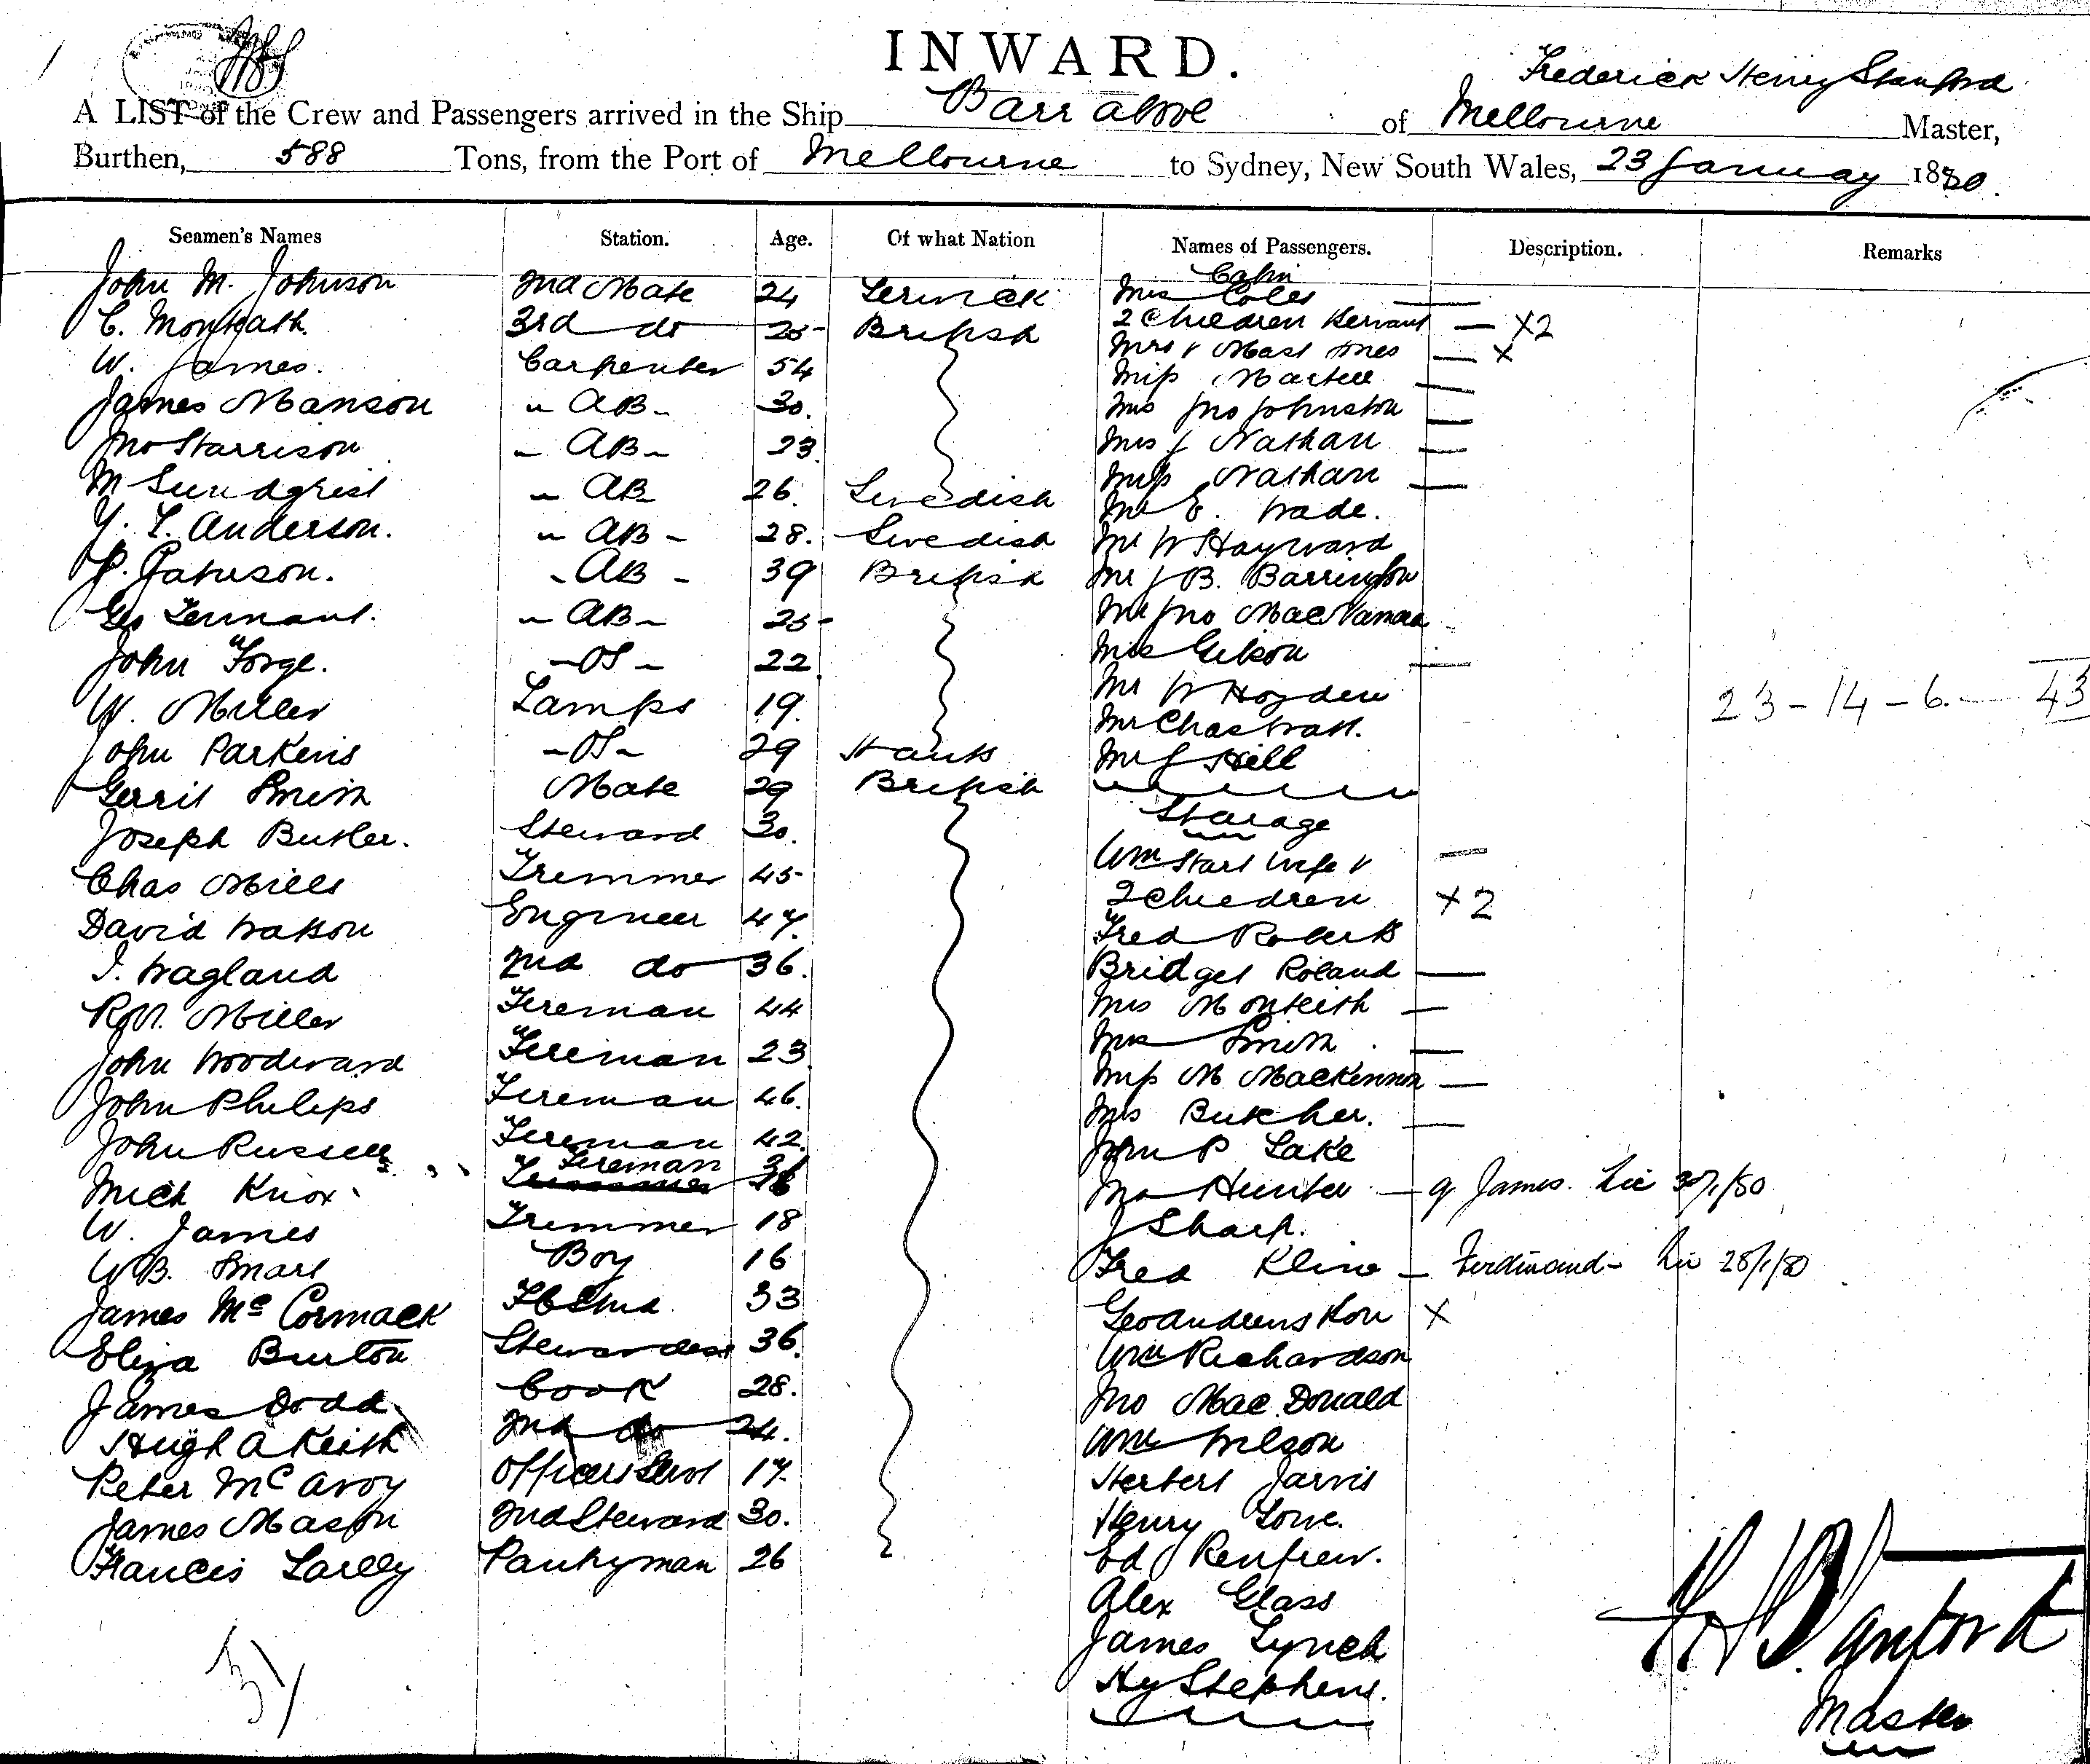 INWARD.
Frederick Henry Stanford
A LIST of the Crew and Passengers arrived in the Ship Barrabool of Melbourne Master,
Burthen, 588 Tons, from the Port of Melbourne to Sydney, New South Wales, 23 January 1880.
Seamen's Names Station. Age. Of what Nation Names of Passengers. Description. Remarks
Cabin
John M. Johnson 2nd Mate 24 Lerwick Mrs Coles —
C. Monteath 3rd do 25 British 2 Children Servant — X2
W. James. Carpenter 54 Mrs & Mast Jones — X
James Manson " AB - 30. Miss Martell —
Jno Harrison - AB - 23 Mrs Jno Johnston —
M Sundgrist " AB 26. Swedish Mrs J Nathan —
Y. L. Anderson. " AB - 28. Swedish Miss Nathan —
P. Paterson. - AB - 39 British Mr E. Wade.
Geo Tennant. " AB - 25 Mr W Hayward
John Forge. - OS - 22 Mr J B. Barrington
W. Miller Lamps 19. Mr Jno MacNamara
John Parkens - OS - 29 Hants Mrs Gibson —
Gerrit Smith Mate 29 British Mr W Hoyden
23 - 14 - 6. — 43
Joseph Butler. Steward 30. Mr Chas Watt.
Chas Mills Tremmer 45 Mr J Hill
Steerage
David Watson Engineer 47. Wm Start Wife & —
J. Wagland 2nd do 36. 2 Children X2
R. Miller Fireman 44 Fred Roberts
John Woodward Fireman 23 Bridget Roland —
John Philips Fireman 46. Mrs Monteith —
John Russell Fireman 42. Mrs Smith. —
Mich Knox Fireman Miss M MacKinnon —
W. James Tremmer 18 Mrs Butcher. —
W.B. Smart Boy 16 John P Lake
James McCormack 33 Jno Hunter — James. 30/1/80
Eliza Burton Stewardess 36. J Sharp.
James Dodd Cook 28. Fred Kline — Ferdinand - 28/1/80
Hugh A Keith 2nd do 24. Geo X
Peter McAvoy Officers Servt 17. Wm Richardson
James Mason 2nd Steward 30. Jno MacDonald
Francis Larlly Pantryman 26 Wm Wilson
Herbert Jarvis
Henry Lowe.
Ed Renfrew.
Alex Glass
James Lynch
Hy Stephens.
31
F H Stanford
Master